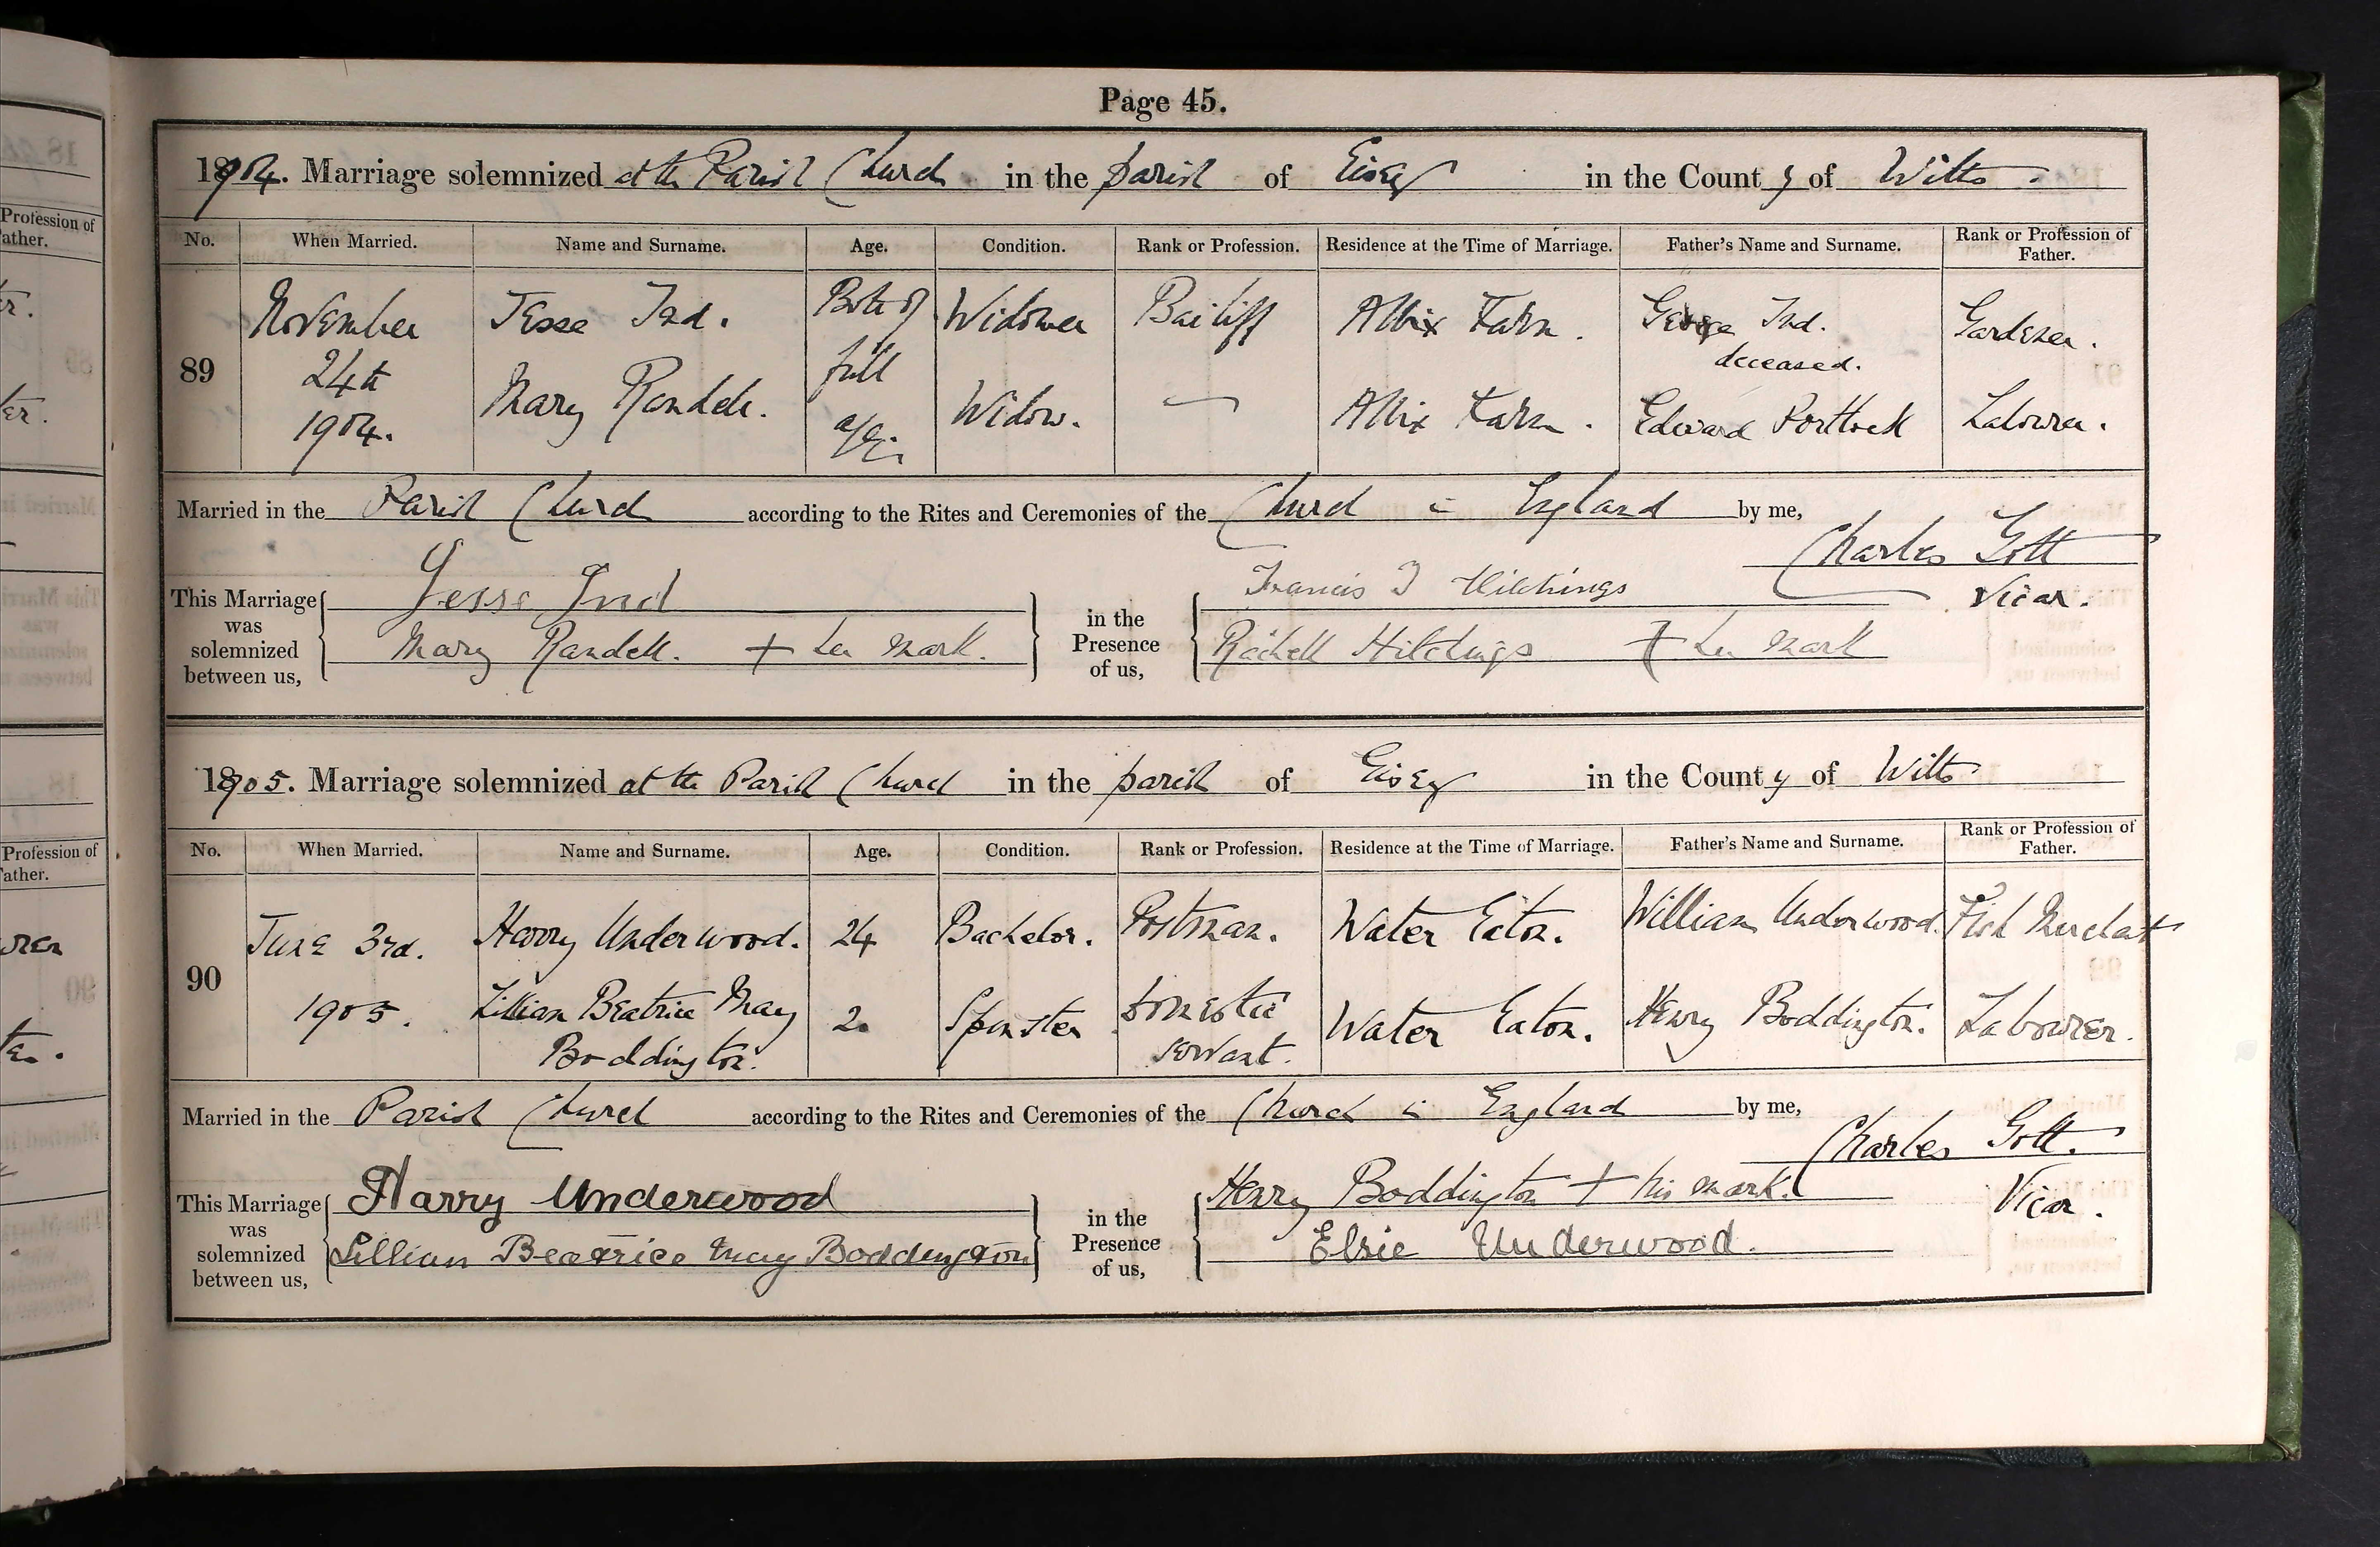 Page 45.
1904. Marriage solemnized at the Parish Church in the parish of Eisey in the County of Wilts.
No. When Married. Name and Surname. Age. Condition. Rank or Profession. Residence at the Time of Marriage. Father's Name and Surname. Rank or Profession of Father.
89
November 24th 1904.
Jesse Ind. Both of full age. Widower Bailiff Farm. George Ind. deceased. Gardener.
Mary Randell. Widow. — Farm. Edward Portlock Labourer.
Married in the Parish Church according to the Rites and Ceremonies of the Church in England by me,
Charles Gott
Vicar.
This Marriage was solemnized between us,
Jesse Ind
Mary Randell. + her mark.
in the Presence of us,
Francis J Hitchings
Rachell Hitchings + her mark
1905. Marriage solemnized at the Parish Church in the parish of Eisey in the County of Wilts
No. When Married. Name and Surname. Age. Condition. Rank or Profession. Residence at the Time of Marriage. Father's Name and Surname. Rank or Profession of Father.
90
June 3rd. 1905.
Harry Underwood. 24 Bachelor. Postman. Water Eaton. William Underwood. Fish Merchant
Lillian Beatrice May Boddington. 20 Spinster domestic servant. Water Eaton. Henry Boddington. Labourer.
Married in the Parish Church according to the Rites and Ceremonies of the Church in England by me,
Charles Gott.
Vicar.
This Marriage was solemnized between us,
Harry Underwood
Lillian Beatrice May Boddington
in the Presence of us,
Henry Boddington + his mark.
Elsie Underwood.
Profession of
ather.
Profession of
ather.